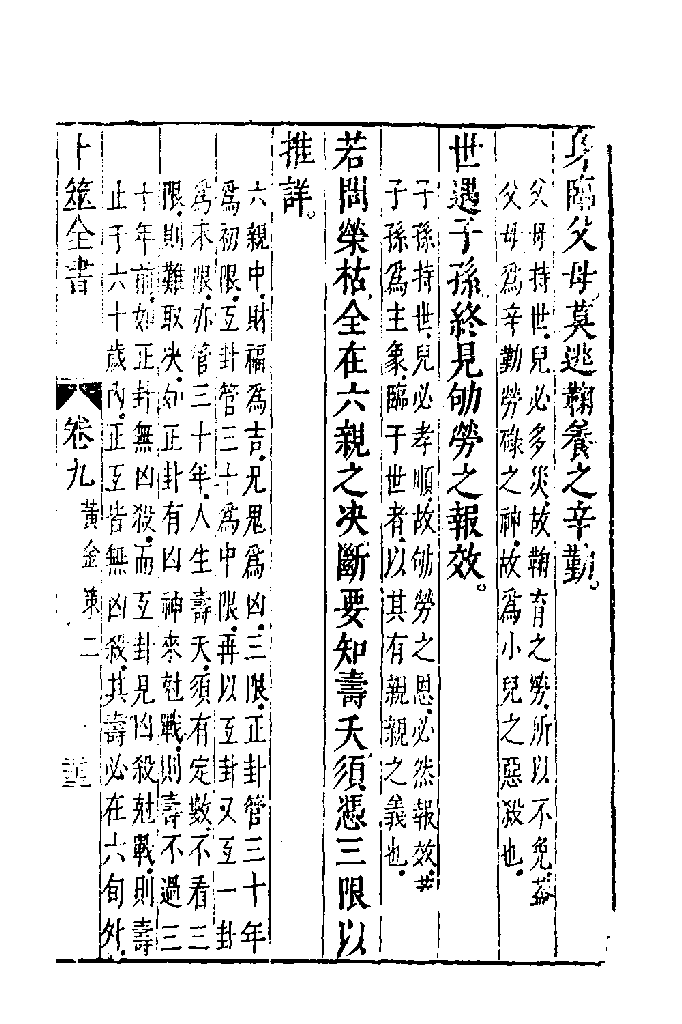 身臨父母莫逃鞠養之辛勤。
父母持世兒必多災故鞠育之勞所以不免葢
父母爲辛勤勞碌之神故爲小兒之惡殺也
世遇子孫終見劬勞之報效。
子孫持世兒必孝順故劬勞之恩必然報效葢
子孫爲主象臨于世者以其有親親之義也
若問榮枯全在六親之决斷要知壽夭須憑三限以
推詳。
六親中財福爲吉兄鬼爲凶三限正卦管三十年
爲初限互卦管三十爲中限再以互卦又互一卦
爲末限亦管三十年人生壽夭須有定數不看三
限則難取决如正卦有凶神來尅戰則壽不過三
十年前如正卦無凶殺而互卦見凶殺尅戰則壽
止于六十歲內正互皆無凶殺其壽必在六旬外
卜筮全書
卷九
黃金策二